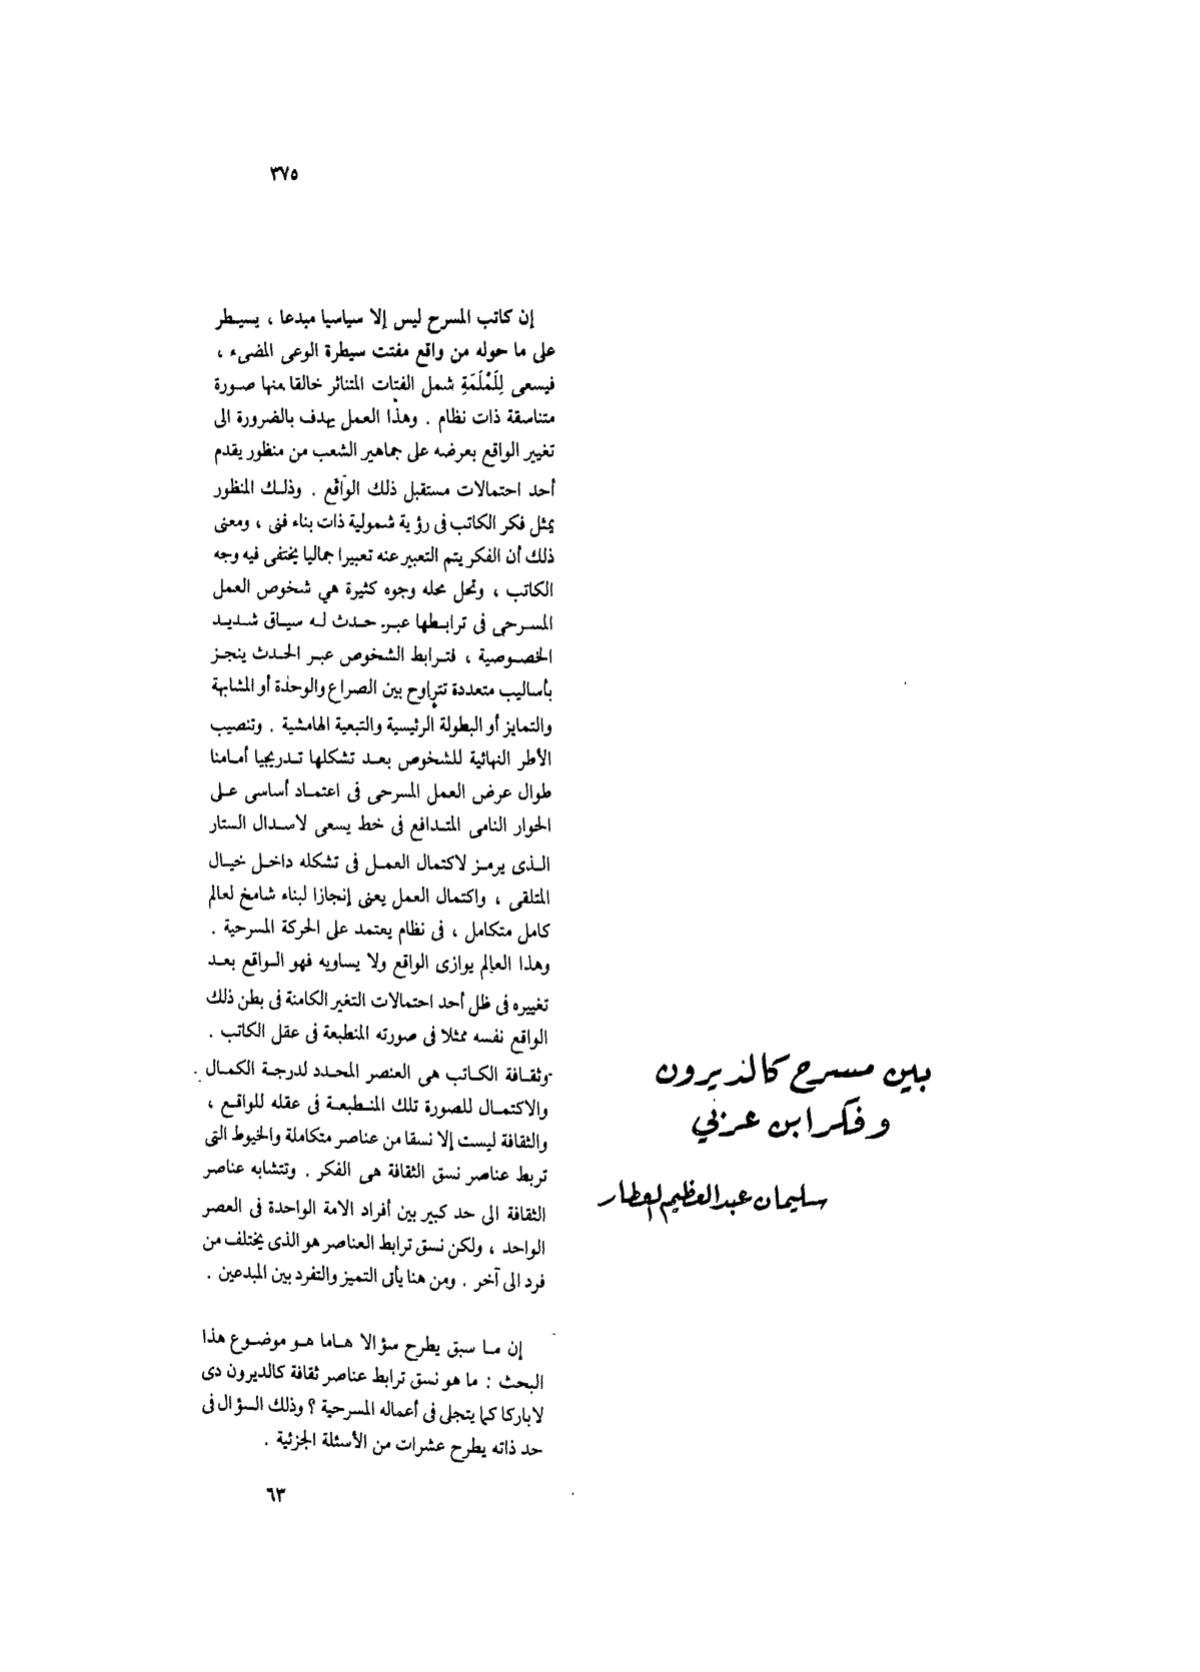 ٣٧٥
بين مسرح كالديرون
وفكر ابن عربي
سليمان عبد العظيم العطار
إن كاتب المسرح ليس إلا سياسيا مبدعا ، يسيطر
على ما حوله من واقع مفتت سيطرة الوعى المضىء ،
فيسعى لِلَمْلَمَةِ شمل الفتات المتناثر خالقا منها صورة
متناسقة ذات نظام . وهذا العمل يهدف بالضرورة الى
تغيير الواقع بعرضه على جماهير الشعب من منظور يقدم
أحد احتمالات مستقبل ذلك الواقع . وذلك المنظور
يمثل فكر الكاتب فى رؤية شمولية ذات بناء فنى ، ومعنى
ذلك أن الفكر يتم التعبير عنه تعبيرا جماليا يختفى فيه وجه
الكاتب ، وتحل محله وجوه كثيرة هي شخوص العمل
المسرحى فى ترابطها عبر حدث له سياق شديد
الخصوصية ، فترابط الشخوص عبر الحدث ينجز
بأساليب متعددة تتراوح بين الصراع والوحدة أو المشابهة
والتمايز أو البطولة الرئيسية والتبعية الهامشية . وتنصيب
الأطر النهائية للشخوص بعد تشكلها تدريجيا أمامنا
طوال عرض العمل المسرحى فى اعتماد أساسى على
الحوار النامى المتدافع فى خط يسعى لاسدال الستار
الذى يرمز لاكتمال العمل فى تشكله داخل خيال
المتلقى ، واكتمال العمل يعنى إنجازا لبناء شامخ لعالم
كامل متكامل ، فى نظام يعتمد على الحركة المسرحية .
وهذا العالم يوازى الواقع ولا يساويه فهو الواقع بعد
تغييره فى ظل أحد احتمالات التغير الكامنة فى بطن ذلك
الواقع نفسه ممثلا فى صورته المنطبعة فى عقل الكاتب .
وثقافة الكاتب هى العنصر المحدد لدرجة الكمال
والاكتمال للصورة تلك المنطبعة فى عقله للواقع ،
والثقافة ليست إلا نسقا من عناصر متكاملة والخيوط التى
تربط عناصر نسق الثقافة هى الفكر . وتتشابه عناصر
الثقافة الى حد كبير بين أفراد الامة الواحدة فى العصر
الواحد ، ولكن نسق ترابط العناصر هو الذى يختلف من
فرد الى آخر . ومن هنا يأتى التميز والتفرد بين المبدعين .
إن ما سبق يطرح سؤالا هاما هو موضوع هذا
البحث : ما هو نسق ترابط عناصر ثقافة كالديرون دى
لاباركا كما يتجلى فى أعماله المسرحية ؟ وذلك السؤال فى
حد ذاته يطرح عشرات من الأسئلة الجزئية .
٦٣